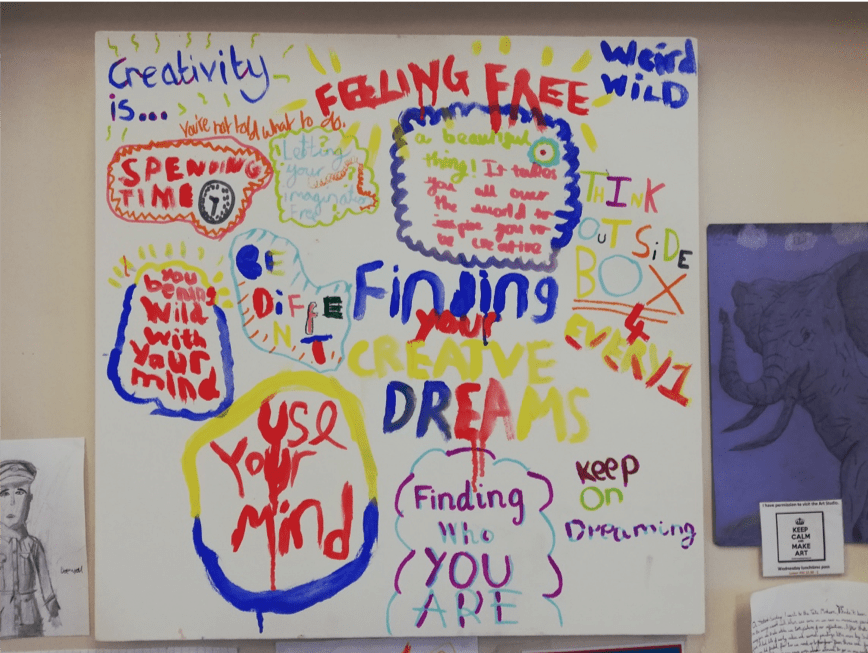 Creativity
is...
Weird
WiLD
FEELING FREE
you're not told what to do.
SPENDING
TIME
Letting
your
imagination
free
a beautiful
thing! It takes
you all over
the world to
inspire you to
be creative
THINK
OUTSiDE
BOX
4
EVERY1
you
being
Wild
with
your
mind
BE
DiFFE
NT
Finding
your
CREATVE
DREAMS
USe
Your
Mind
Finding
Who
YOU
ARE
Keep
ON
Dreaming
I have permission to visit the Art Studio.
KEEP
CALM
AND
MAKE
ART
Wednesday lunchtime pass